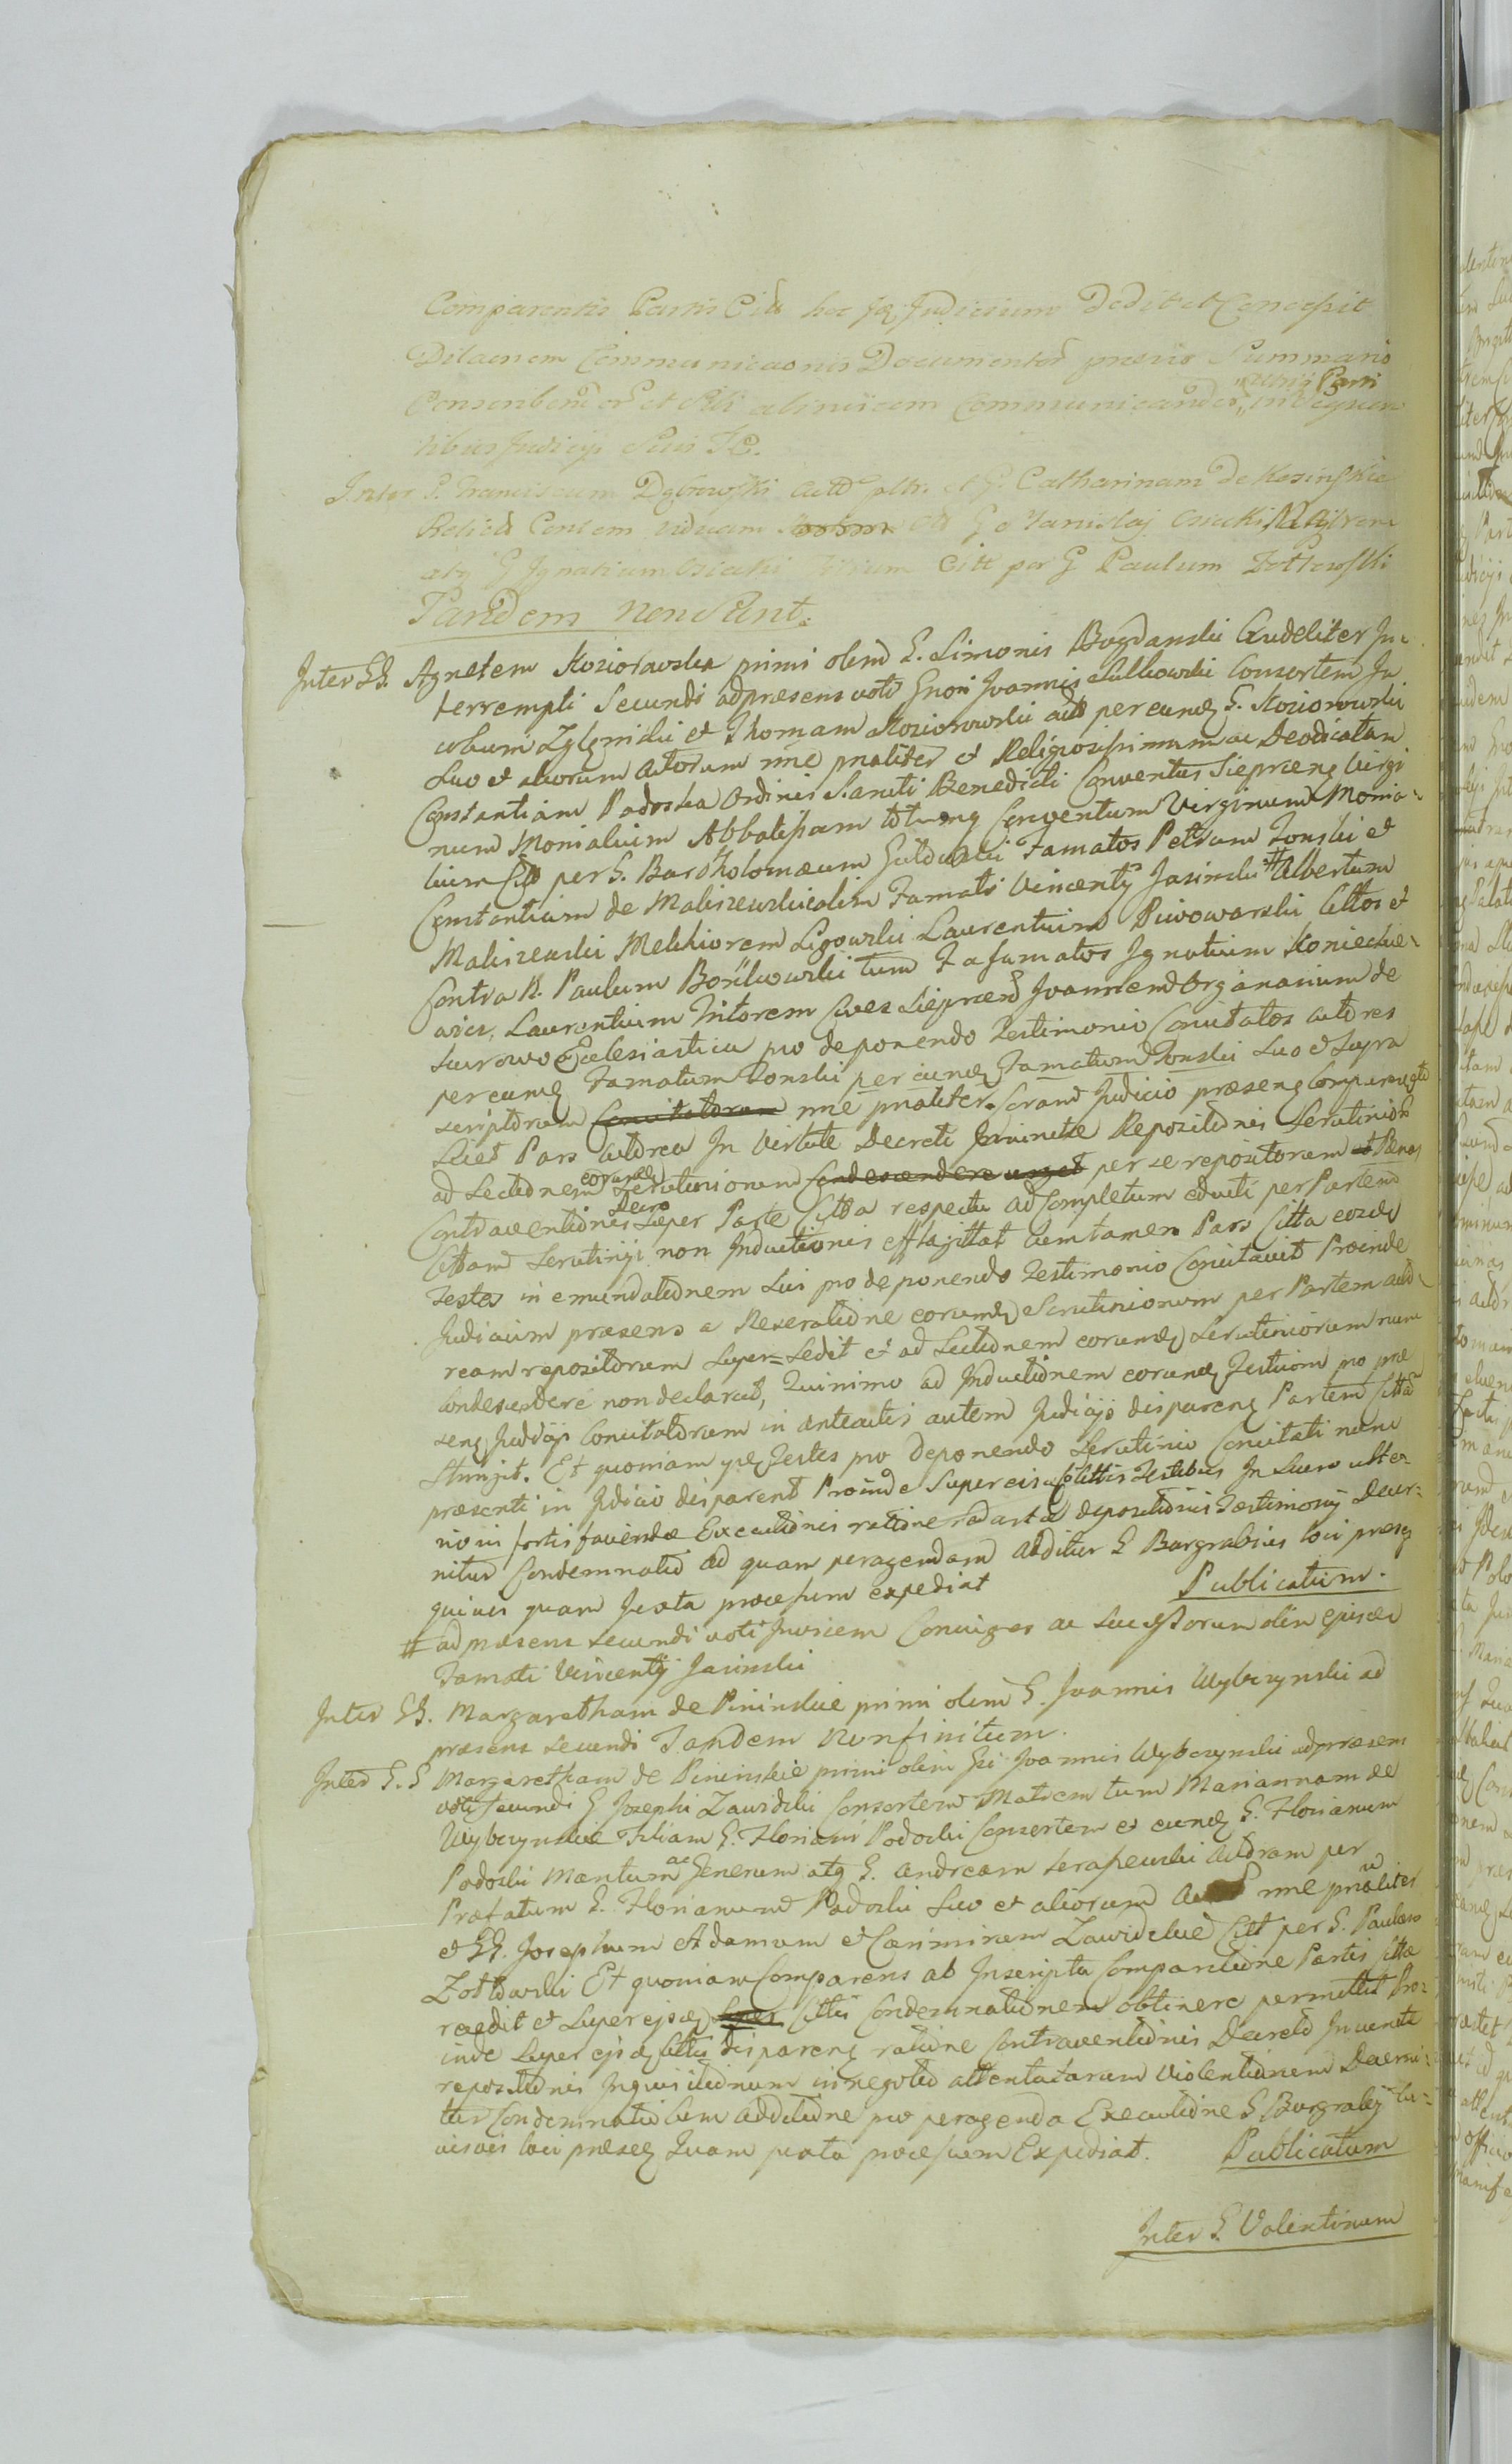 Comparentis Partis Citt hoc Judicium Dedit et Concessit
Dilaonem Communicaonis Documentor previo Summario
Conscribend or et Sibi abinvicem Communicandor, utrij Parti
tibus Judicijs Suis
Inter G. Franciscum Dąbrowski Actt et G. Catharinam de Kosinskie
Relicta Consem viduam olt G Stanislaj Osiecki Matrem
atq G Ignatium Osiecki Filium Citt per G Paulum Zottowski
Tandem non Sunt.
Inter GG. Agnetem Koziorowska primi olim G. Simonis Bogdanski Crudeliter In-
terrempti Secundi adpraesens voti Gnosi Joannis Sulkowski Consortem Ja
cobum Zglgnicki et Thomam Koziorowski actt per eundq G. Koziorowski
Suo et aliorum Actorum nne pnaliter et Religiosissimam ac Deodicatam
Constantiam Podoska Ordinis Sancti Benedicti Conventus Sieprceng Virgi
num Monialium Abbatissam totumq Conventum Virginum Monia-
lium Citt per G. Bartholomaeum Famatos Petrum Tonski et
Constantiam de Maliszewskie olim Famati Vincentij Jasinski # Albertum
Maliszewski Melchiorem Ligowski Laurentium Piwowarski Cittos et
Contra R. Paulum Borzkowski tum Fafamatos Ignatium Konieckie-
wicz, Laurentium Tritorem Cives Sieprcens Joannem Organarium de
Kurowo Ecclesiastica pro deponendo Testimonio Concitatos actores
per eundq Famatum Tonski per eundq Famatum Tonski Suo et Supra
scriptorum Concitatorum nne pnaliter. Coram Judicio praesenq Comparuerunt
Licet Pars actorea In Virtute Decreti Inventae Repositionis Scrutinior
ad Lectionem eorundq Scrutiniorum Condescendere urget per se repositorum et Paenas
Contraventionis Decro Super Parte Citta respectu ad Completum educti per Partem
Cittam Scrutinij non Inductionis efflagittat Cumtamen Pars Citta eosdq
Testes in emundationem Sui pro deponendo Testimonio Concitavit Proinde
Judicium praesens a Reseratione eorundq Scrutiniorum per Partem acto-
ream repositorum Super=Sedit et ad Lectionem eorundq Scrutiniorum nunc
Condescendere non declarat, Quinimo ad Inductionem eorundq Testium pro prae
senq Judicijs Concitatorum in anteactis autem Judicijs disparenq Partem Cittam
Stringit. Et quoniam ijdq Testes pro deponendo Scrutinio Concitati nunc
praesenti in Judicio disparent Proinde Super eis Cittis Testibus In Lucro ulte-
rioris fortis faciendae Executionis ratione depositionis Testimonij Decer-
nitur Condemnatio ad quam peragendam additur G Burgrabius loci praesq
quivis quam Juxta processum expediat Publicatum.
# ad praesens secundi voti Invicem Coniuges ac Successorum olim ejusdq
Famati Vincentij Jasinski
Inter GG. Margaretham de Pininskie primi olim G. Joannis Wybczynski ad
praesens secundi Tandem non finitum.
Inter G.G Margaretham de Pininskie primi olim Gsi Joannis Wybczynski adpraesens
voti secundi G Josephi Zawidzki Consortem Matrem tum Mariannam de
Wybczynskie Filiam G. Floriani Podoski Consortem et eundq G. Florianum
Podoski Maritum ac Generum atq G. Andream Serafewski Actoram per
Praefatum G. Florianum Podoski Suo et aliorum Act nne pnaliter
et GG. Josephum Adamum et Casimirum Zawidzkie Citt per G. Paulum
Zottowski Et quoniam Comparens ab Inscripta Comparitione Partis Cittae
recedit et Super ejsdq Super Cittis Condemnationem obtinere permittit Pro-
inde Super ejsdq Cittis disparenq ratione Contraventionis Decreto Inventae
repositionis Inquisitionum innegotio attentatarum Violentiarum Decerni-
tur Condemnatio Cum additione pro peragenda Executione G Burgrabij Cu-
iusvis loci praeseq Quam juxta processum Expediat. Publicatum
Inter G. Valentinum